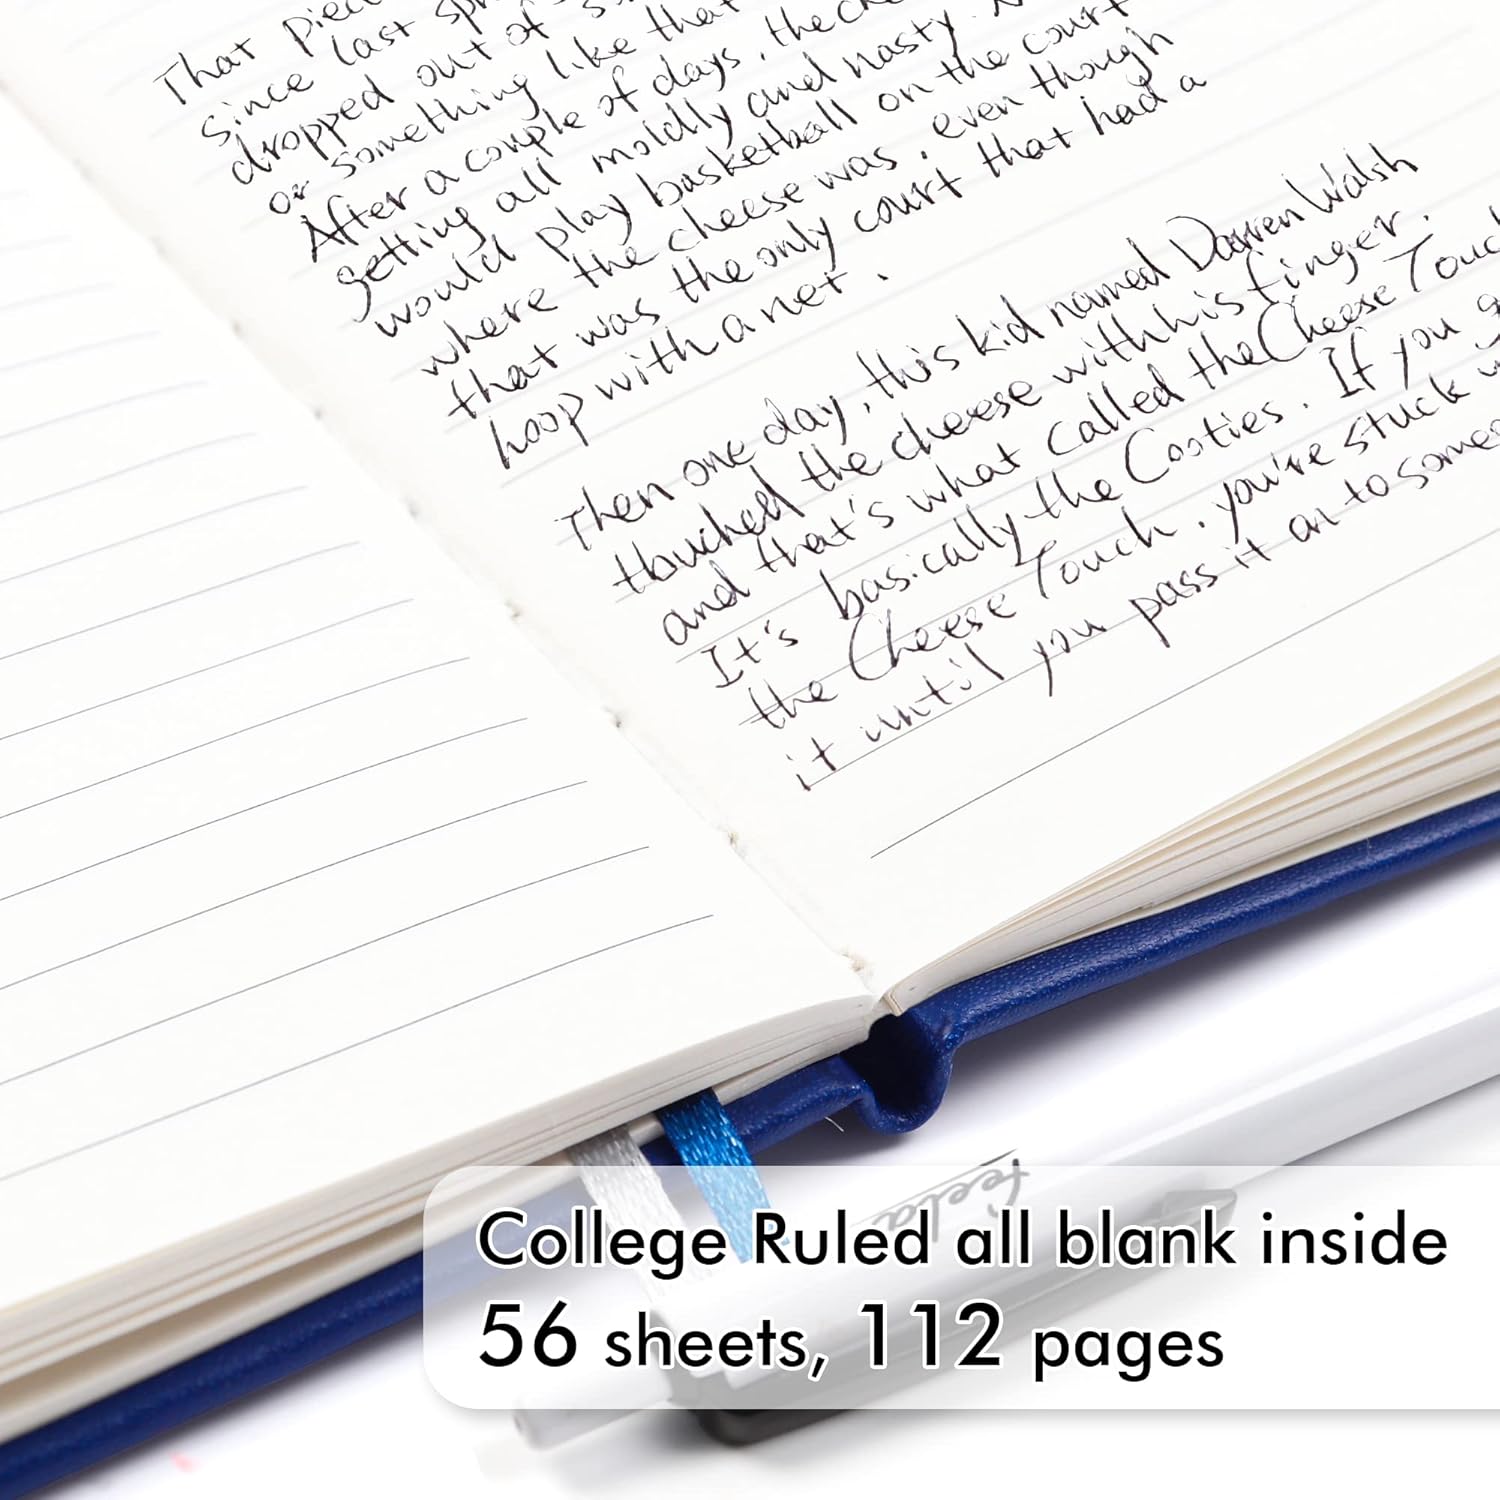 That piec
since last spr
dropped out of s
or something like that
After a couple of days, the che
getting all moldly and nasty. N
would play basketball on the court
where the cheese was, even though
that was the only court that had a
hoop with a net.
Then one day, this kid named Darren Walsh
touched the cheese with his finger.
and that's what called the Cheese Touch
It's basically the Cooties. If you g
the Cheese Touch, you're stuck w
it until you pass it on to someo
feela
College Ruled all blank inside
56 sheets, 112 pages